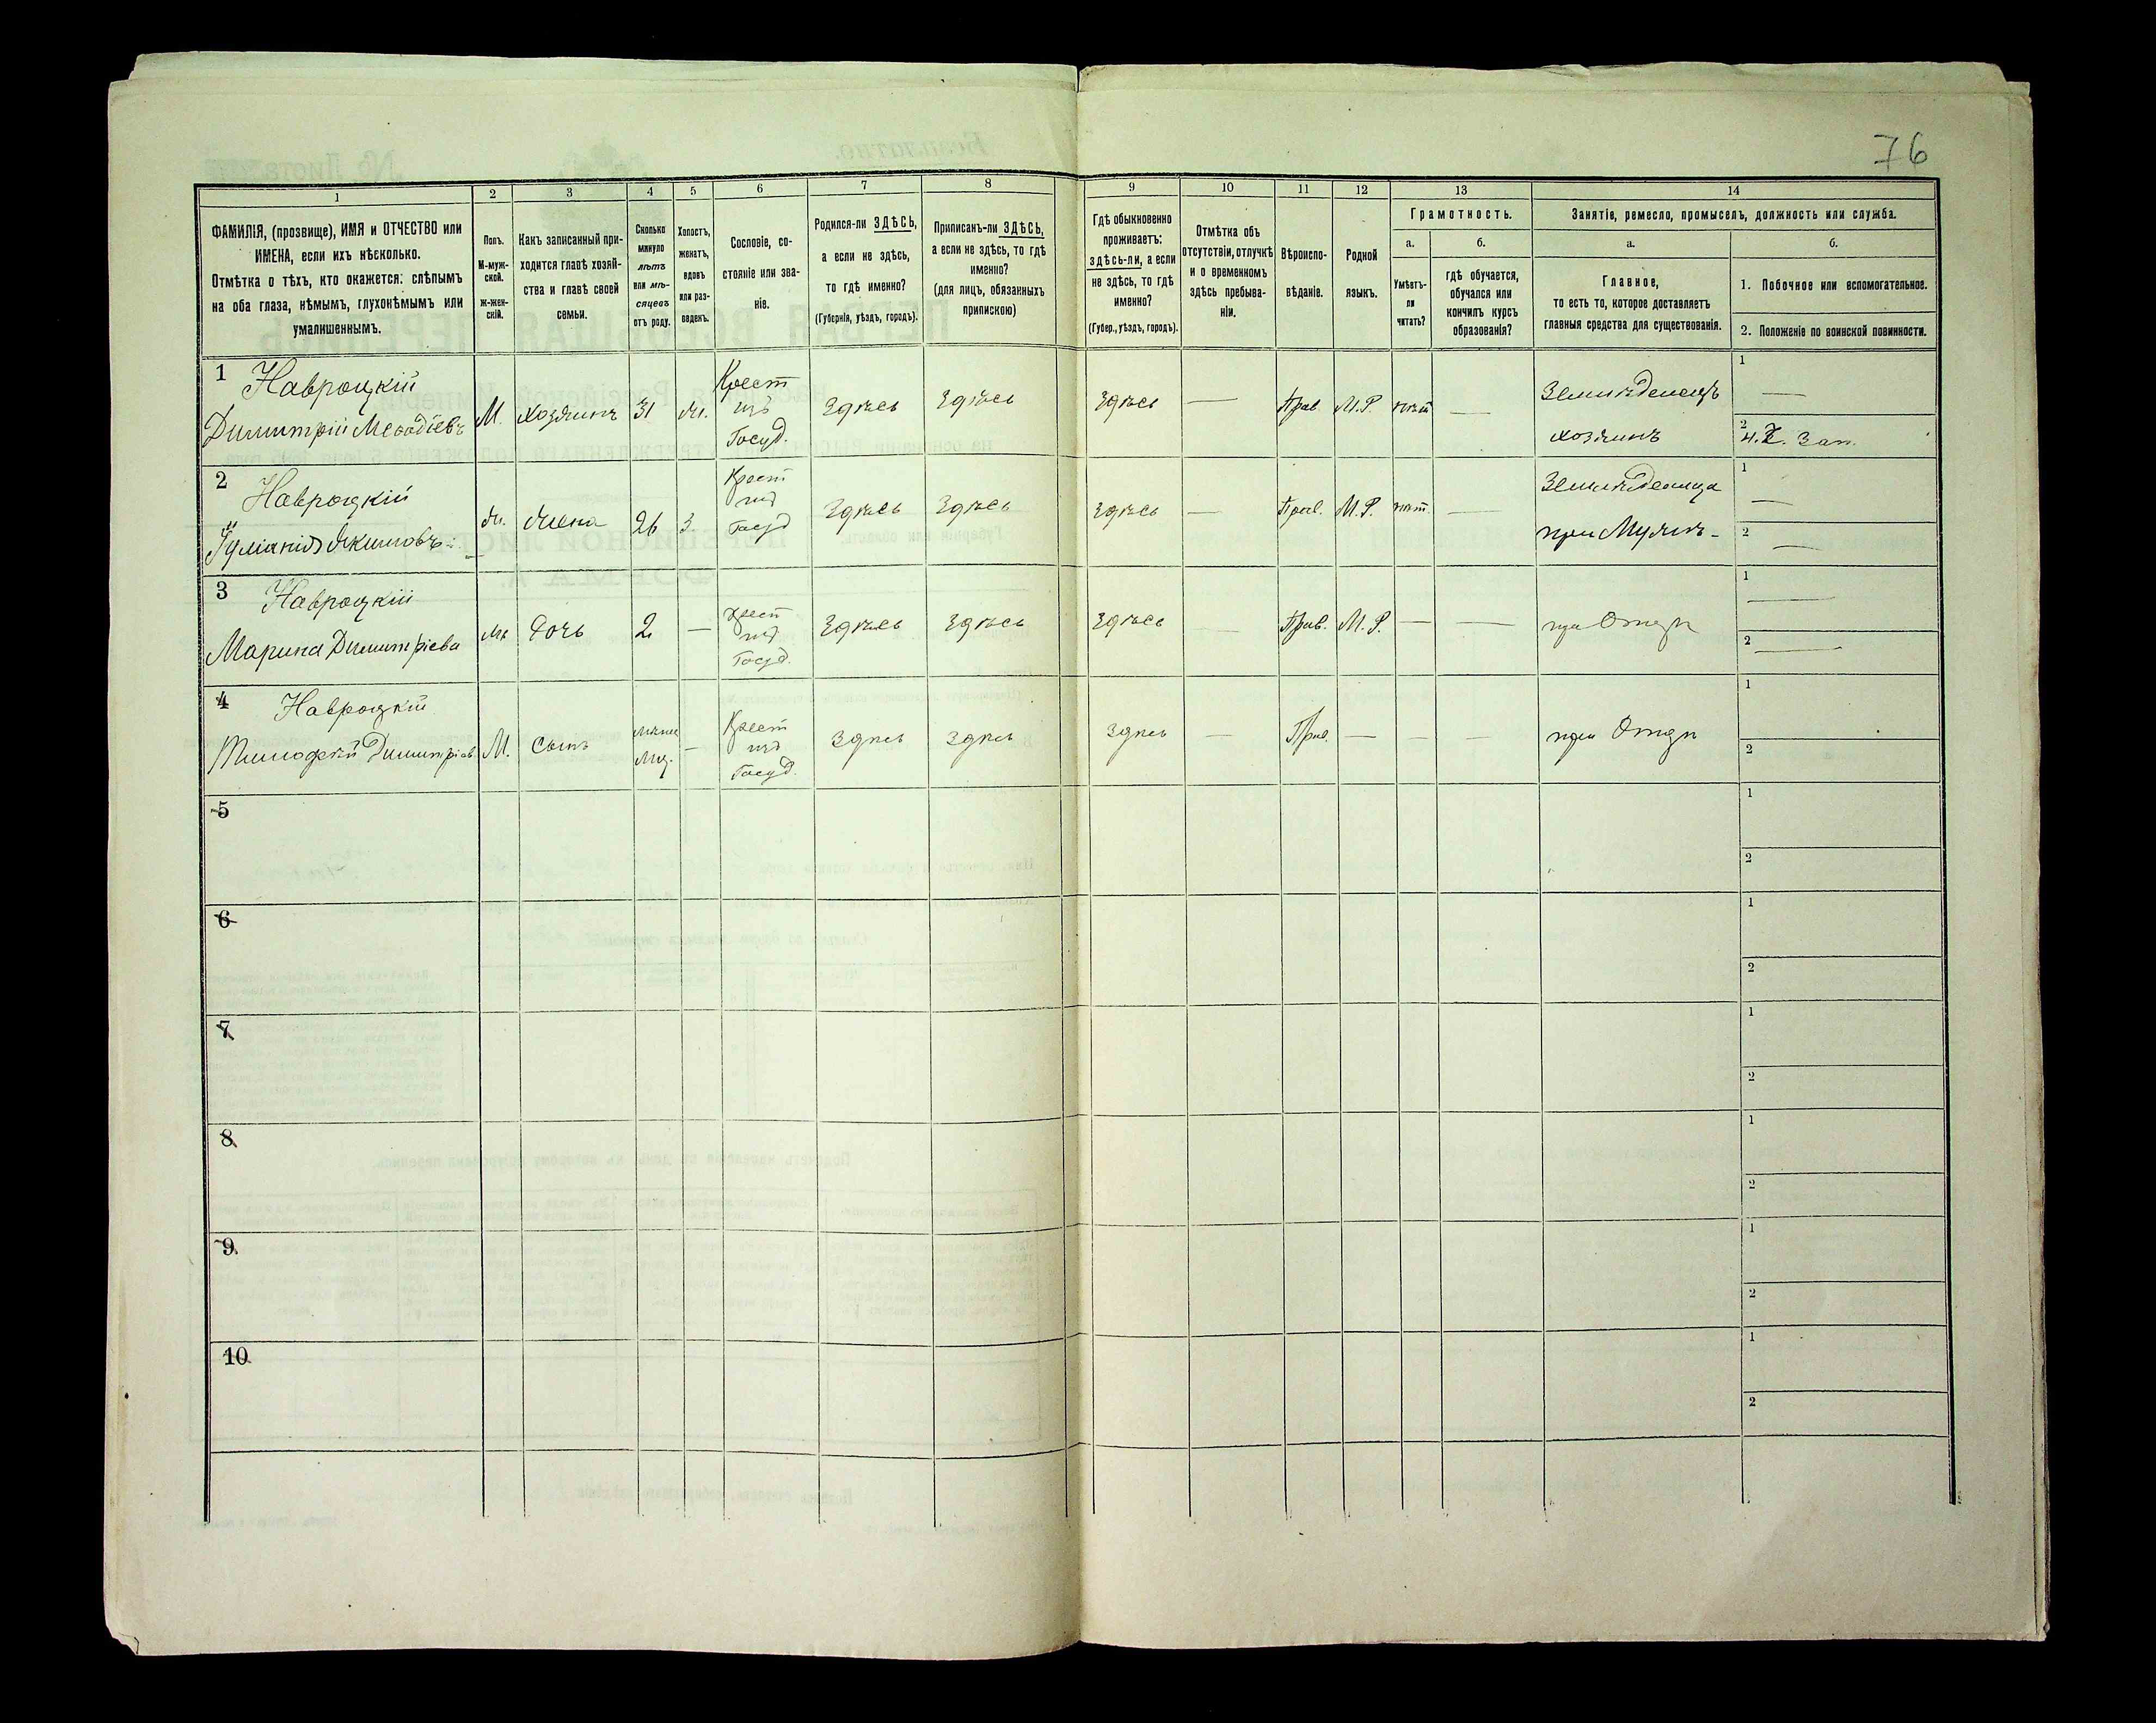 76
1
2
3
4
5
6
7
8
9
10
11
12
13
14
ФАМИЛІЯ, (прозвище), ИМЯ и ОТЧЕСТВО или
ИМЕНА, если ихъ нѣсколько.
Отмѣтка о тѣхъ, кто окажется: слѣпымъ
на оба глаза, нѣмымъ, глухонѣмымъ или
умалишеннымъ.
Полъ.
М-муж-
ской.
ж-жен-
скій.
Какъ записанный при-
ходится главѣ хозяй-
ства и главѣ своей
семьи.
Сколько
минуло
лѣтъ
или мѣ-
сяцевъ
отъ роду.
Холостъ,
женатъ,
вдовъ
или раз-
веденъ.
Сословіе, со-
стояніе или зва-
ніе.
Родился-ли ЗДѢСЬ,
а если не здѣсь,
то гдѣ именно?
(Губернія, уѣздъ, городъ).
Приписанъ-ли ЗДѢСЬ,
а если не здѣсь, то гдѣ
именно?
(для лицъ, обязанныхъ
припискою)
Гдѣ обыкновенно
проживаетъ:
здѣсь-ли, а если
не здѣсь, то гдѣ
именно?
(Губер., уѣздъ, городъ).
Отмѣтка объ
отсутствіи, отлучкѣ
и о временномъ
здѣсь пребыва-
ніи.
Вѣроиспо-
вѣданіе.
Родной
языкъ.
Грамотность.
а.
Умѣетъ-
ли
читать?
б.
гдѣ обучается,
обучался или
кончилъ курсъ
образованія?
Занятіе, ремесло, промыселъ, должность или служба.
а.
Главное,
то есть то, которое доставляетъ
главныя средства для существованія.
б.
1. Побочное или вспомогательное.
2. Положеніе по воинской повинности.
1 Навроцкій
Димитрій Меѳодіевъ
М.
хозяинъ
31
ж.
Крест
изъ
Госуд.
Здѣсь
Здѣсь
Здѣсь
—
Прав
М.Р.
нѣт
—
Земледелецъ
хозяинъ
1 —
2 Зап.
2 Навроцкій
Якимовъ
ж.
жена
26
З
Крест
изъ
Госуд
Здѣсь
Здѣсь
Здѣсь
—
Прав.
М.Р.
нѣт.
—
Земледелица
при Мужѣ
1 —
2 —
3 Навроцкій
Марина Димитріева
ж
Дочь
2
—
Крест
изъ
Госуд.
Здѣсь
Здѣсь
Здѣсь
—
Прав.
М.Р.
—
—
при Отцѣ
1 —
2 —
4 Навроцкій
Тимофѣй Димитріев.
М.
Сынъ
—
Крест
изъ
Госуд.
Здѣсь
Здѣсь
Здѣсь
—
Прав.
—
—
—
при Отцѣ
1
2
5
1
2
6
1
2
7
1
2
8
1
2
9
1
2
10
1
2